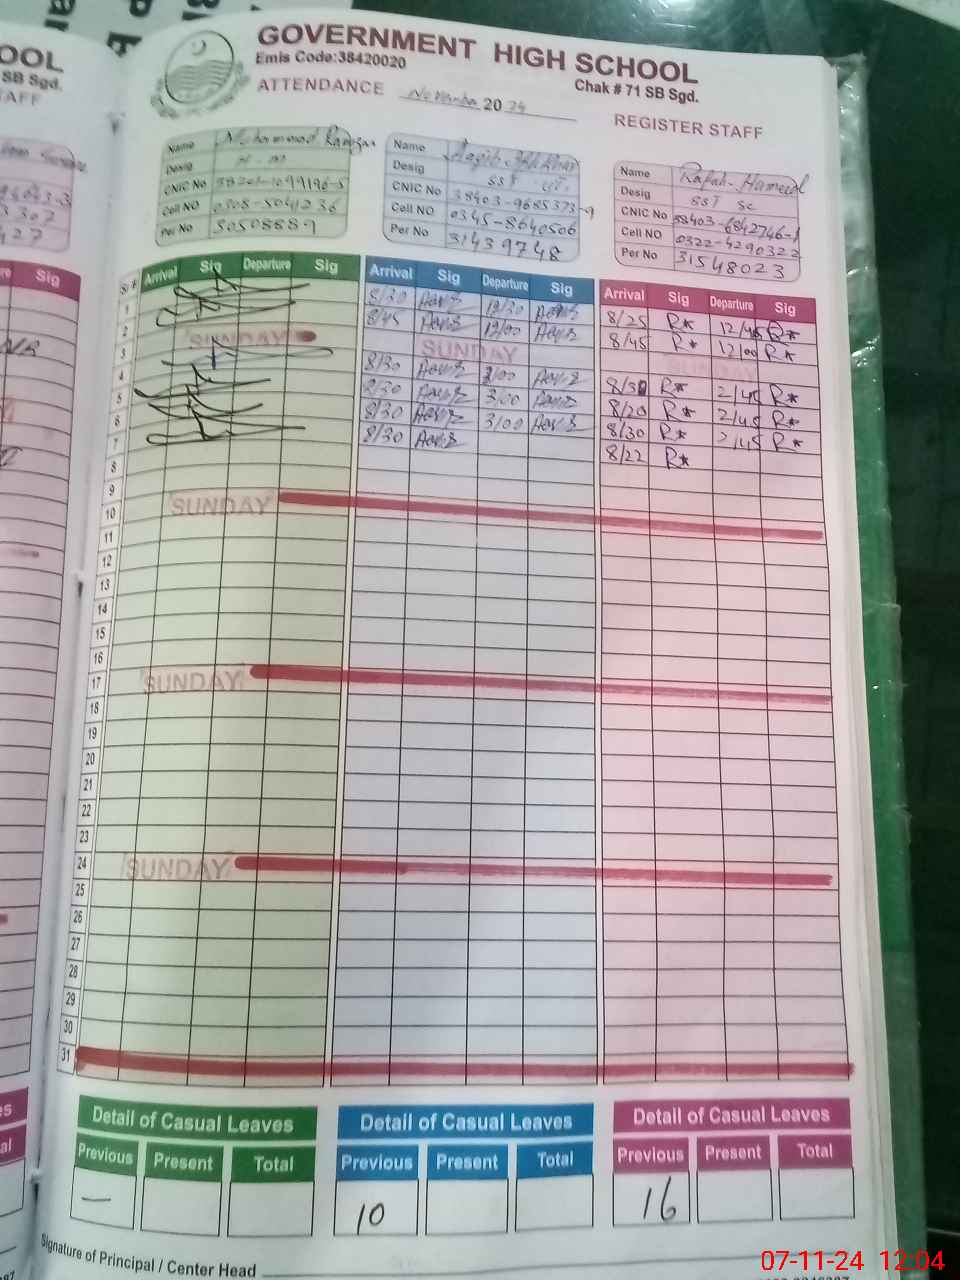 GOVERNMENT HIGH SCHOOL
Emis Code:38420020
Chak # 71 SB Sgd.
ATTENDANCE 2024 REGISTER STAFF
OOL
SB Sgd.
TAFF
Name Muhammad Ramzan
Desig H-m
CNIC No
Cell NO 0308-5041236
Per No 50508889
Name
Desig SST
CNIC No 38403-9685373-9
Cell NO 0345-8640506
Per No 31439748
Name Rafah-Hameed
Desig SST Sc
CNIC No 38403-6842746-1
Cell NO 0322-4290322
Per No 31548023
Sr # Arrival Sig Departure Sig Arrival Sig Departure Sig Arrival Sig Departure Sig
1 8/30 12/30 8/25 R* 12/45 R*
2 8/45 12/00 8/45 R* 12/00 R*
3 SUNDAY SUNDAY SUNDAY
4 8/30 3/00 8/30 R* 2/45 R*
5 8/30 3/00 8/20 R* 2/45 R*
6 8/30 3/00 8/30 R* 2/45 R*
7 8/30 8/22 R*
8
9
10 SUNDAY
11
12
13
14
15
16
17 SUNDAY
18
19
20
21
22
23
24 SUNDAY
25
26
27
28
29
30
31
Detail of Casual Leaves Detail of Casual Leaves Detail of Casual Leaves
Previous Present Total Previous Present Total Previous Present Total
— 10 16
Signature of Principal / Center Head
07-11-24 12:04